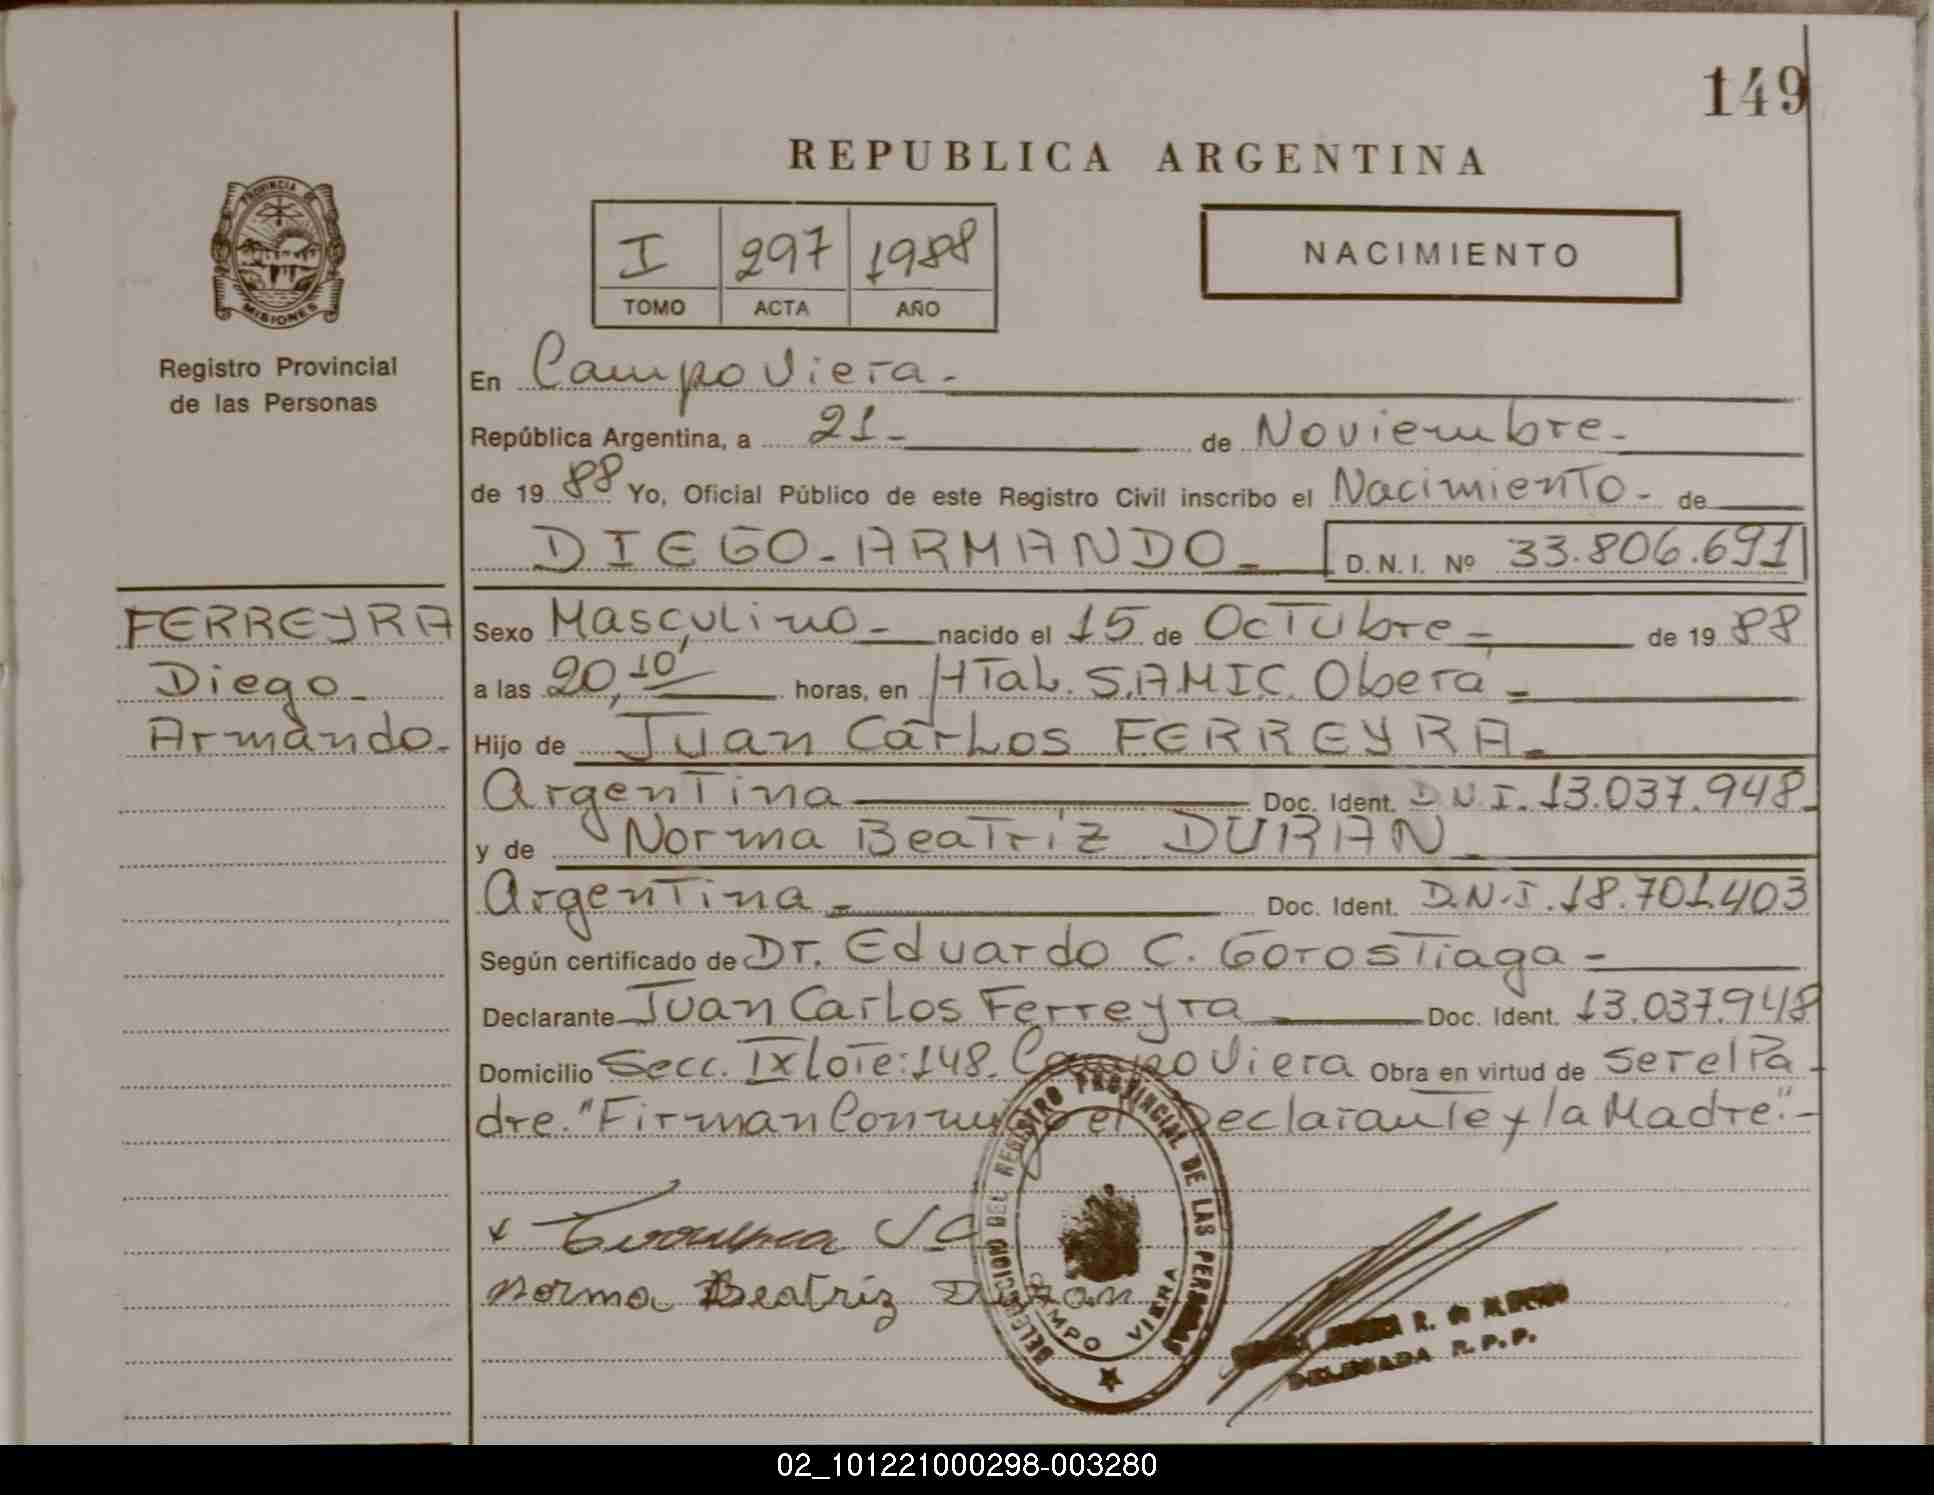 149
REPUBLICA ARGENTINA
PROVINCIA DE
MISIONES
Registro Provincial
de las Personas
I 297 1988
TOMO ACTA AÑO
NACIMIENTO
En Campo Viera.-
República Argentina, a 21- de Noviembre.-
de 1988 Yo, Oficial Público de este Registro Civil inscribo el Nacimiento- de
DIEGO-ARMANDO- D.N.I. Nº 33.806.691
FERREYRA
Diego-
Armando.-
Sexo Masculino- nacido el 15 de Octubre- de 1988
a las 20,10' horas, en Htal. S.A.M.I.C. Oberá-
Hijo de Juan Carlos FERREYRA-
Argentina Doc. Ident. D.N.I. 13.037.948-
y de Norma Beatríz DURAN
Argentina- Doc. Ident. D.N.I. 18.701.403
Según certificado de Dr. Eduardo C. Gorostiaga-
Declarante Juan Carlos Ferreyra Doc. Ident. 13.037.948
Domicilio Secc. IX Lote: 148. Campo Viera Obra en virtud de ser el Pa-
dre. "Firman Conmigo el Declarante y la Madre".-
J.C.
Norma Beatríz Duran
DEL REGISTRO PROVINCIAL DE LAS PERSONAS
CAMPO VIERA
R. de
DELEGADA R.P.P.
02_101221000298-003280